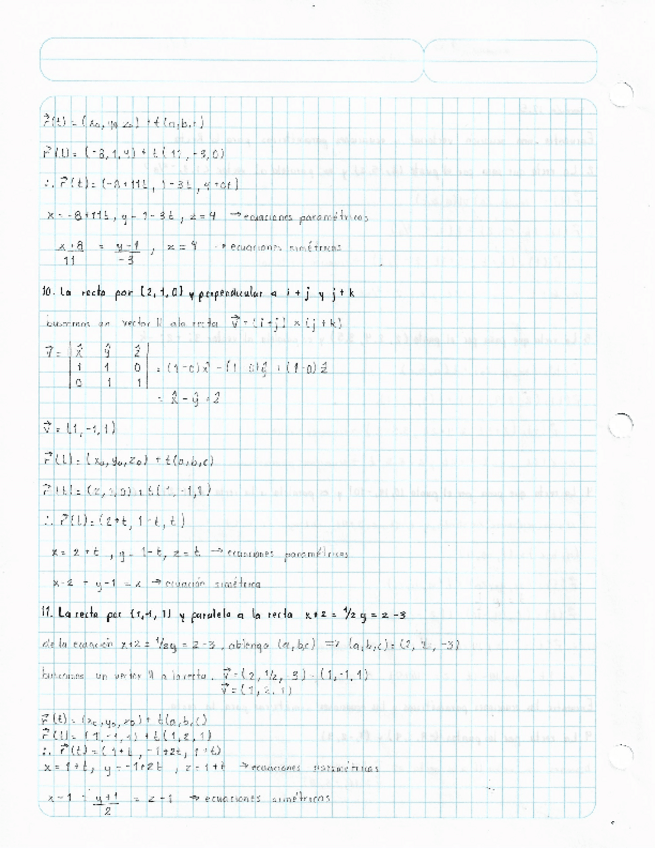 r⃗(t) = (x₀, y₀, z₀) + t(a,b,c)
r⃗(t) = (-8,1,4) + t(11,-3,0)
∴ r⃗(t) = (-8+11t, 1-3t, 4+0t)
x = -8+11t, y = 1-3t, z = 4 → ecuaciones paramétricas
x+8/11 = y-1/-3, z = 4 → ecuaciones simétricas
10. La recta por (2,1,0) y perpendicular a i + j y j + k
buscamos un vector || a la recta v⃗ = (i+j) × (j+k)
v⃗ = | x̂ ŷ ẑ |
| 1 1 0 | = (1-0)x̂ - (1-0)ŷ + (1-0)ẑ
| 0 1 1 |
= x̂ - ŷ + ẑ
v⃗ = (1,-1,1)
r⃗(t) = (x₀, y₀, z₀) + t(a,b,c)
r⃗(t) = (2,1,0) + t(1,-1,1)
∴ r⃗(t) = (2+t, 1-t, t)
x = 2+t, y = 1-t, z = t → ecuaciones paramétricas
→ ecuación simétrica
11. La recta por (1,-1,1) y paralela a la recta x+2 = 1/2 y = z-3
de la ecuación x+2 = 1/2 y = z-3, obtengo (a,b,c) ⇒ (a,b,c) =
buscamos un vector || a la recta.
v⃗ = (1,2,1)
r⃗(t) = (x₀, y₀, z₀) + t(a,b,c)
r⃗(t) = (1,-1,1) + t(1,2,1)
∴ r⃗(t) = (1+t, -1+2t, 1+t)
x = 1+t, y = -1+2t, z = 1+t → ecuaciones paramétricas
x-1 = y+1/2 = z-1 → ecuaciones simétricas